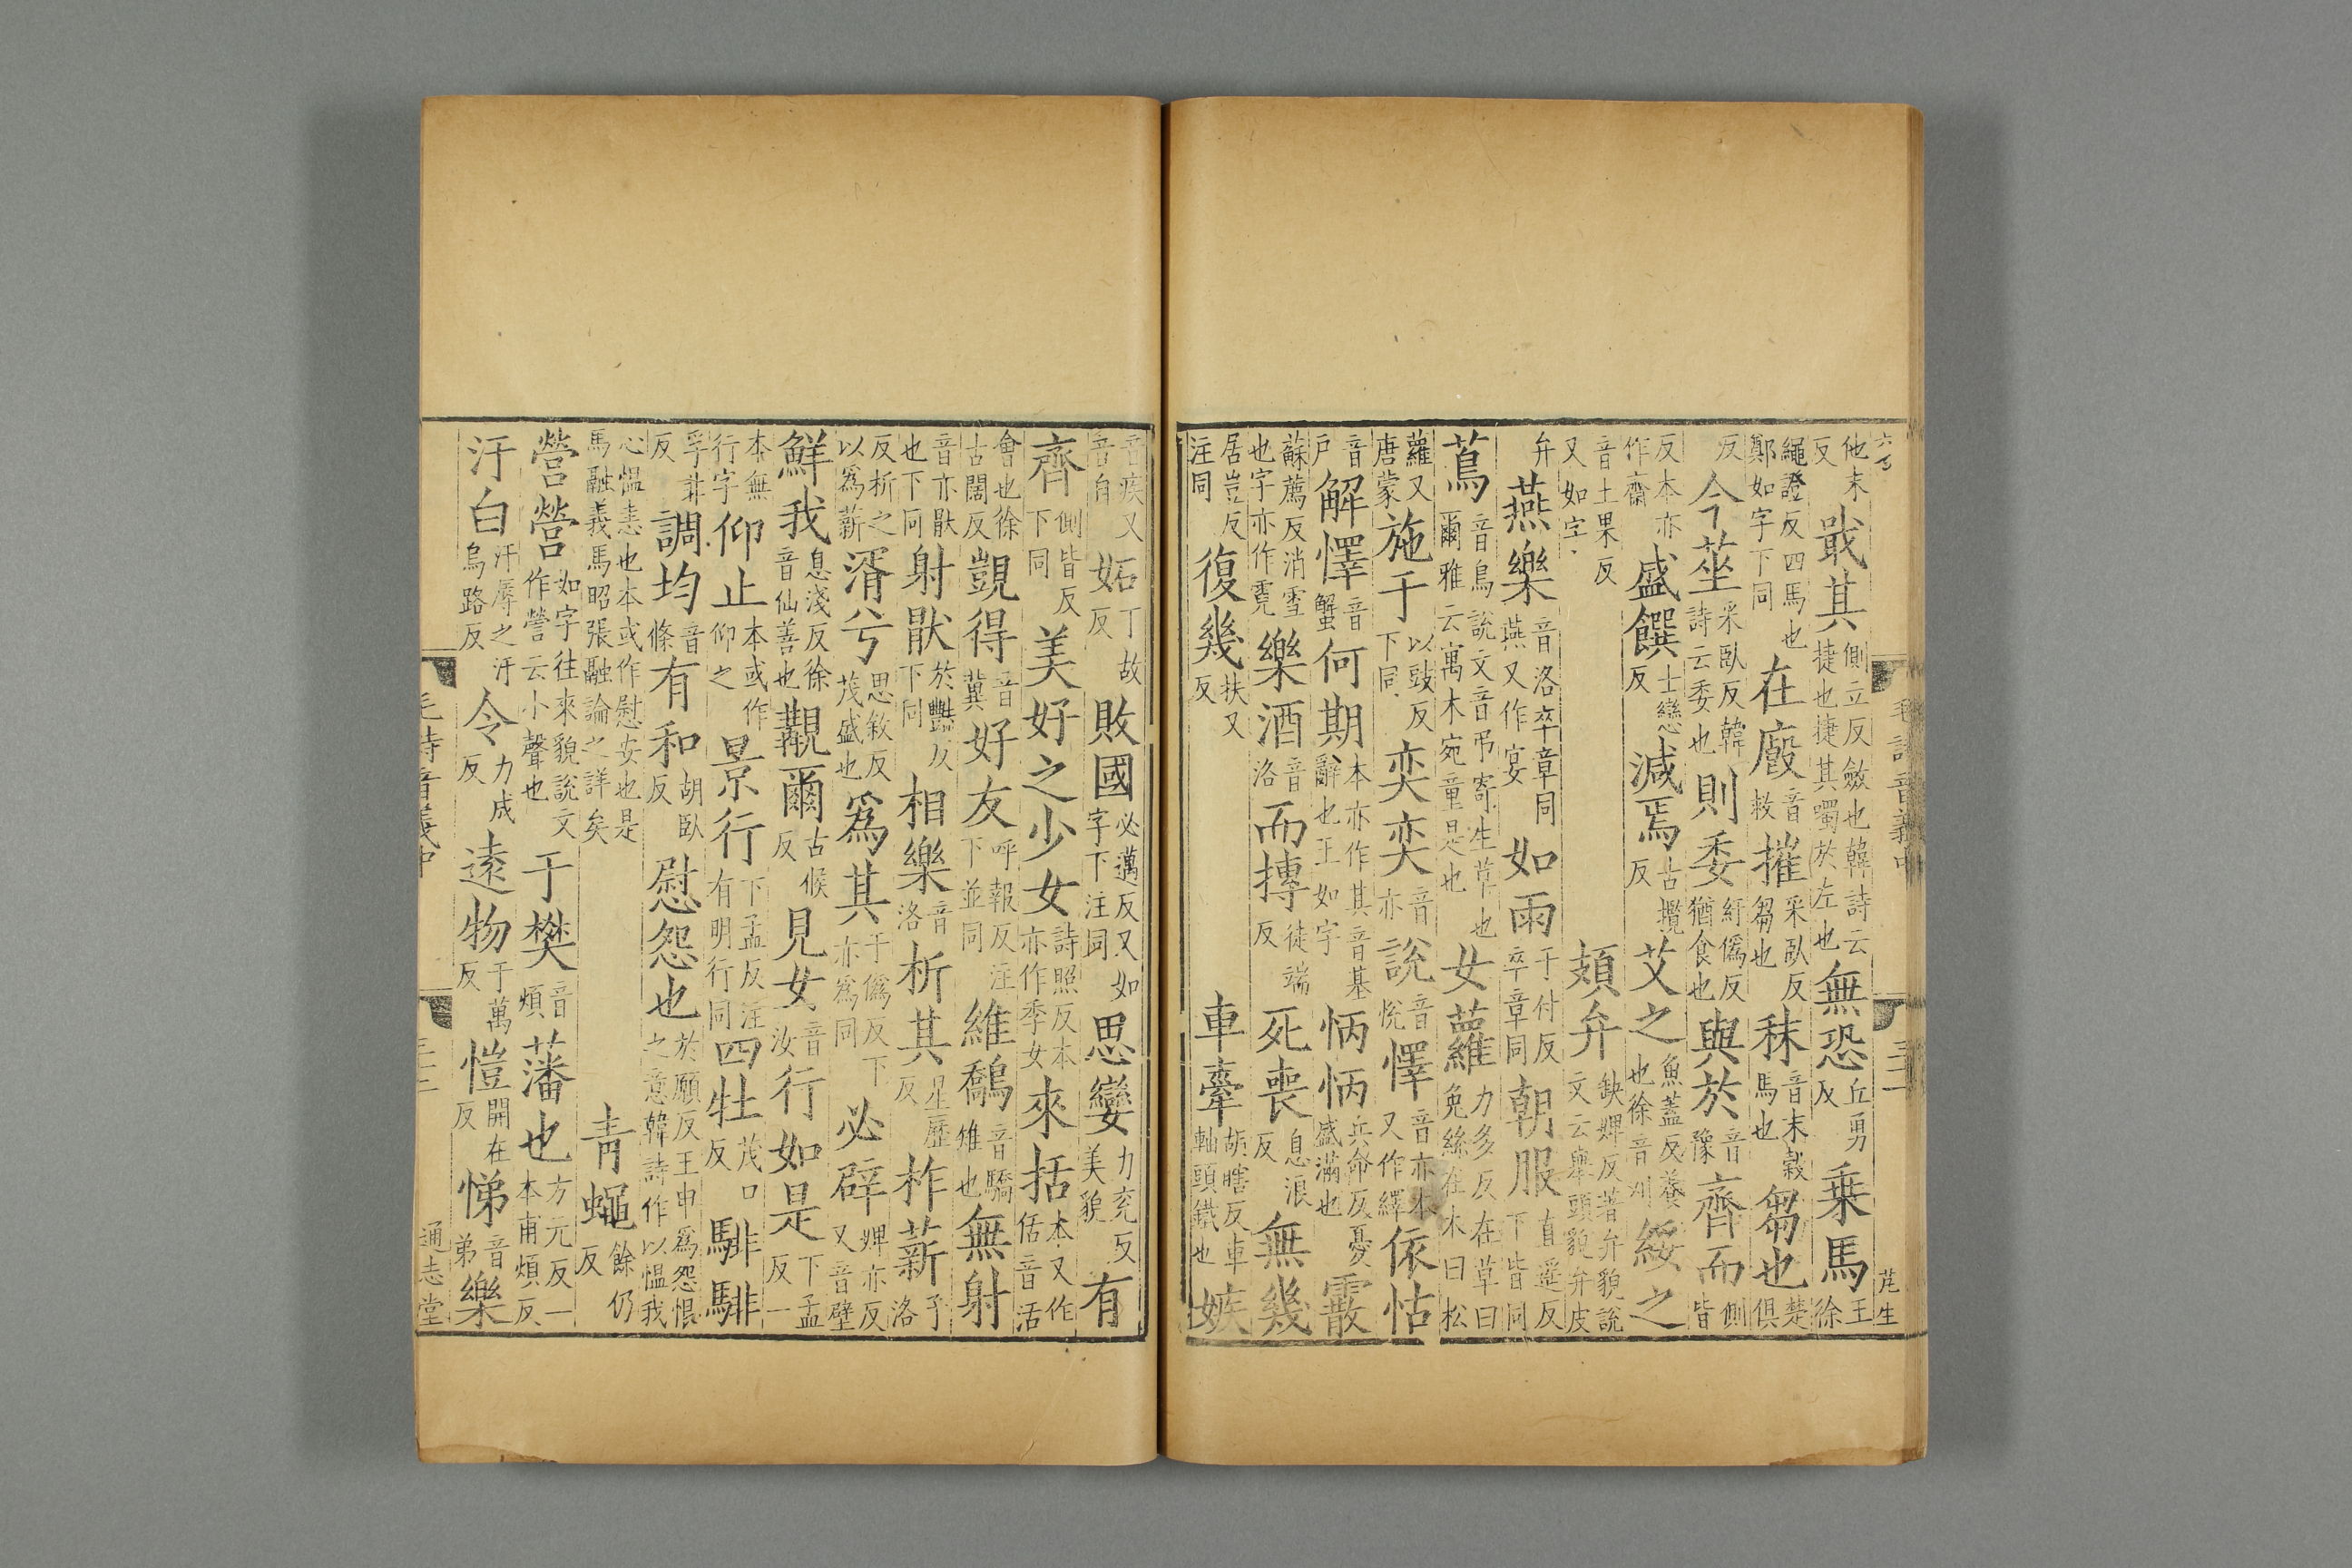 他末反戢其側立反斂也韓詩云捷也捷其噣於左也無恐丘勇反乗馬王徐
繩證反四馬也鄭如字下同在廄音救摧采臥反芻也秣音末榖馬也芻也楚俱
反今莝采臥反韓詩云委也則委紆僞反猶食也與於音豫齊而側皆
反本亦作齋盛饌士戀反減焉古攬反艾之魚蓋反養也徐音刈綏之
音土果反又如字頍弁缺婢反著弁貌說文云舉頭貌弁皮
弁燕樂音洛卒章同燕又作宴如雨于付反卒章同朝服直遥反下皆同
蔦音鳥說文音弔寄生草也爾雅云寓木宛童是也女蘿力多反在草曰兔絲在木曰松
蘿又唐蒙施于以豉反下同奕奕音亦說音悅懌音亦本又作繹依怙
音户解懌音蟹何期本亦作其音基辭也王如字怲怲兵命反憂盛滿也霰
蘇薦反消雪也字亦作霓樂酒音洛而摶徒端反死喪息浪反無幾
居豈反注同復幾扶又反車舝胡瞎反車軸頭鐵也嫉
毛詩音義中 三十二
音疾又音自妬丁故反敗國必邁反又如字下注同思孌力兖反美貌有
齊側皆反下同美好之少女詩照反本亦作季女來括本又作佸音活
會也徐古闊反覬得音冀好友呼報反注下並同維鷮音驕雉也無射
音亦猒也下同射猒於豔反下同相樂音洛析其星歷反柞薪子洛
反析之以爲薪湑兮思敘反茂盛也爲其于僞反下亦爲同必辟婢亦反又音壁
鮮我息淺反徐音仙善也覯爾古候反見女音汝行如是下孟反一
本無行字仰止本或作仰之景行下孟反注有明行同四牡茂口反騑騑
孚非反調均音條有和胡臥反慰怨也於願反王申爲怨恨之意韓詩作以愠我
心愠恚也本或作慰安也是馬融義馬昭張融論之詳矣青蠅餘仍反
營營如字往來貌說文作營云小聲也于樊音煩藩也方元反一本甫煩反
汙白汙辱之汙烏路反令力成反遠物于萬反愷開在反悌音弟樂
毛詩音義中 三十二 通志堂